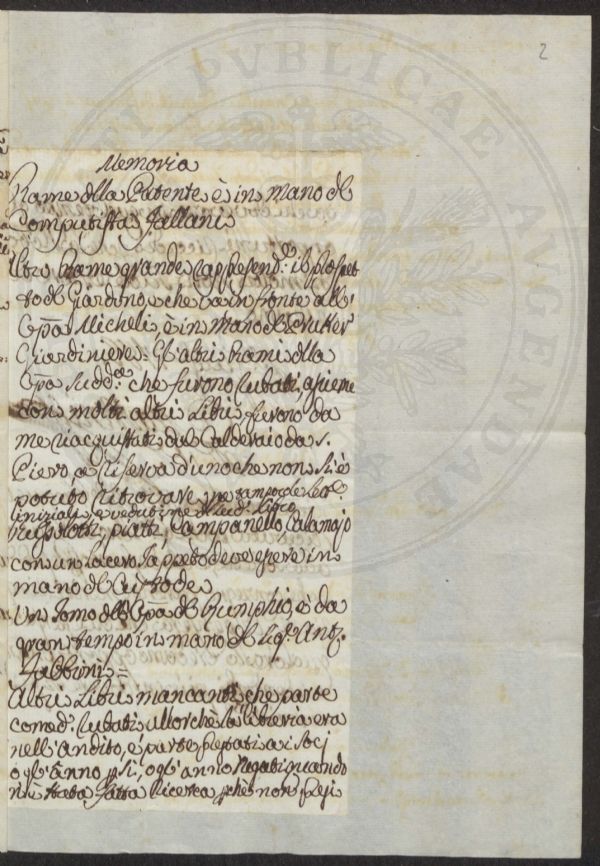 2
PVBLICAE AVGENDAE
Memoria
Rame della Patente è in mano del
Computista Fallani
Altro Rame grande rappresend. il prospet
to del Giardino, che va in fronte all'
Opa Micheli, è in mano del
Giardiniere = Gl'altri rami della
Opa Sudd.a che furono rubati, assieme
con molti altri Libri furono da
me riacquistati dal Calderaio da S.
Piero, a riserva d'uno che non si è
potuto ritrovare, ne
iniziali, e vedutine
piatti, Campanello, Calamajo
con un lacero Tappeto deve essere in
mano del Custode
Un Tomo dell'Opa del Rumphio, è da
gran tempo in mano del Sig.r Ant.
=
Altri Libri mancanti, che parte
come d. rubati allorchè la libreria era
nell'andito, e parte prestati a i Socj
ogl'anno p si, ogl'anno negati
n'è stata fatta ricerca, pchè non